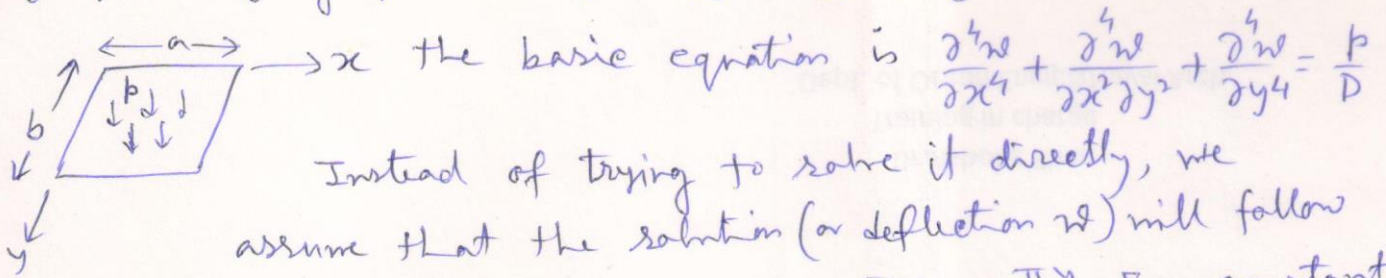 a
→x the basic equation is ∂⁴w/∂x⁴ + ∂⁴w/∂x²∂y² + ∂⁴w/∂y⁴ = p/D
p
b
Instead of trying to solve it directly, we
assume that the solution (or deflection w) will follow
y